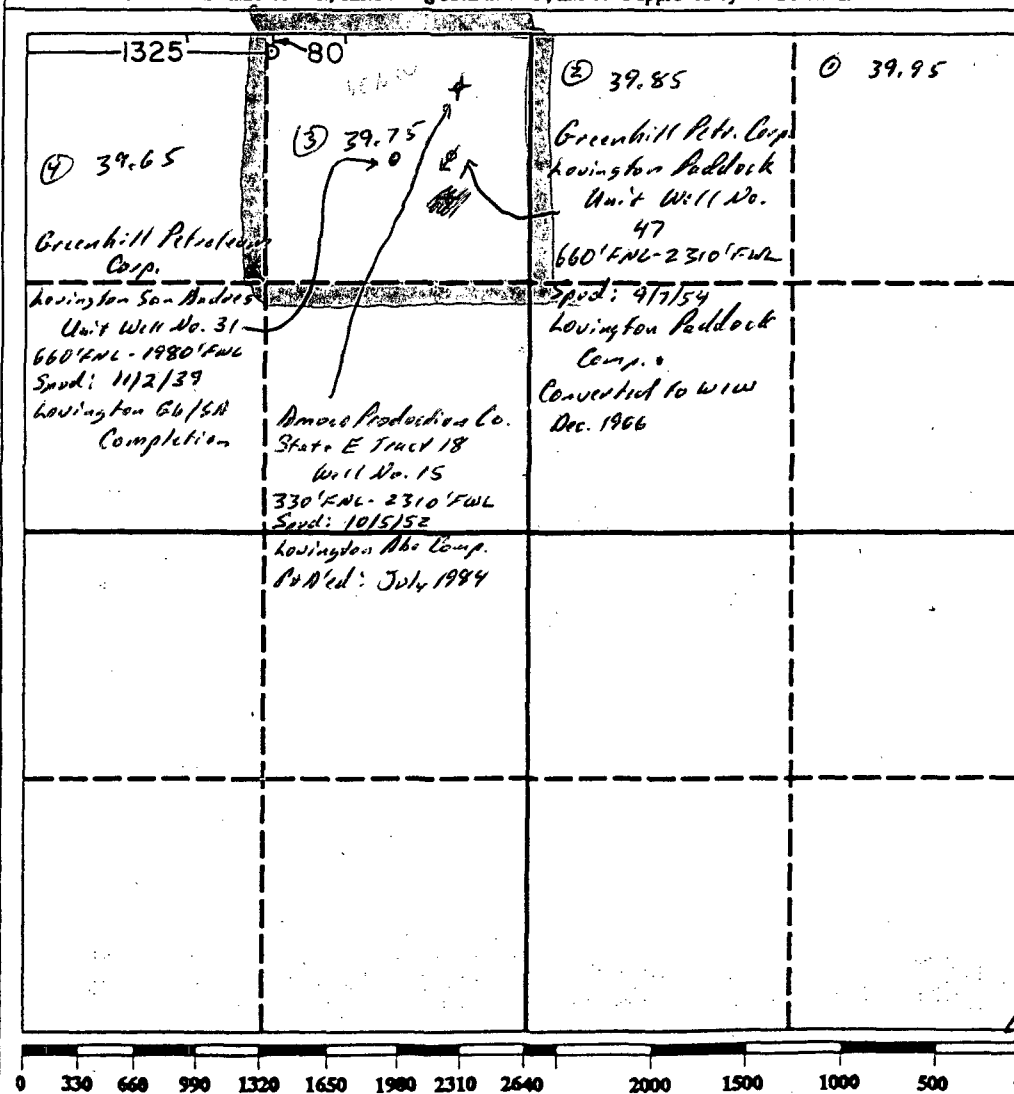 1325 80
④ 39.65
③ 39.75
② 39.85
① 39.95
Greenhill Petroleum
Corp.
Lovington San Andres
Unit Well No. 31
660'FNL-1980'FWL
Spud: 11/2/39
Lovington Gb/SA
Completion
Amoco Production Co.
State E Tract 18
Well No. 15
330'FNL-2310'FWL
Spud: 10/5/52
Lovington Abo Comp.
P&A'ed: July 1984
Greenhill Petr. Corp
Lovington Paddock
Unit Well No.
47
660'FNL-2310'FWL
Spud: 9/7/54
Lovington Paddock
Comp.
Converted to WIW
Dec. 1966
0 330 660 990 1320 1650 1980 2310 2640 2000 1500 1000 500